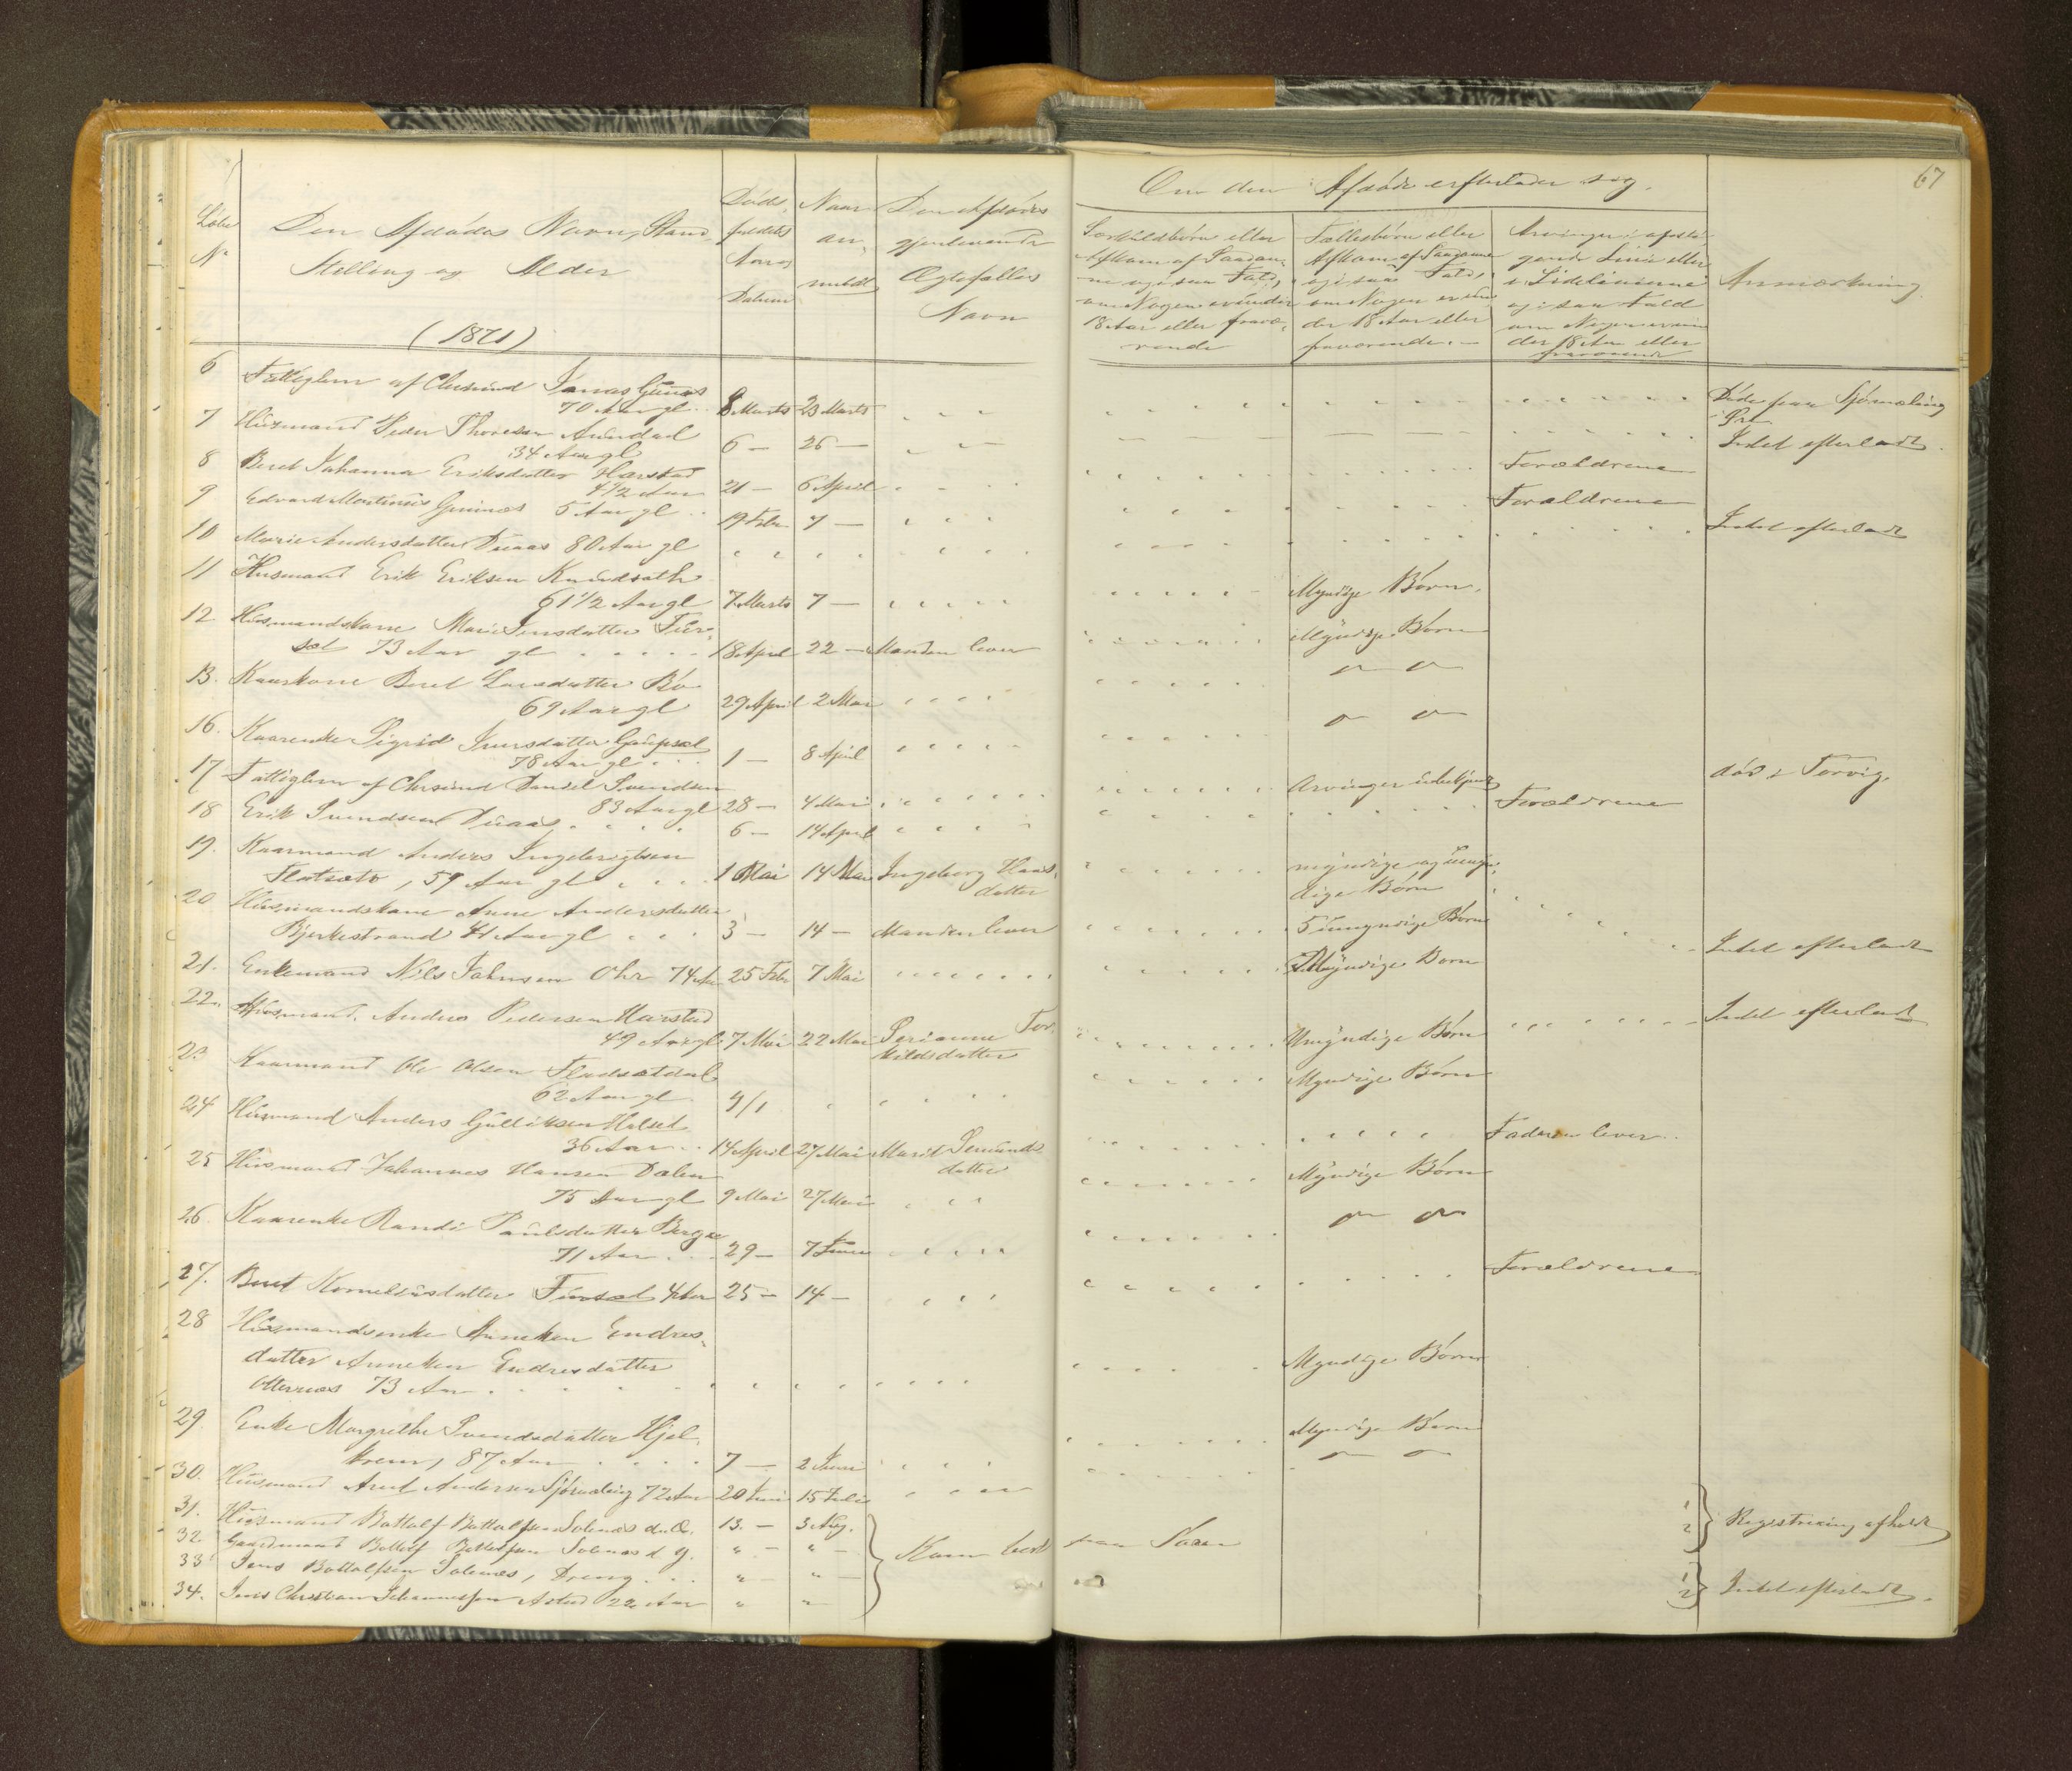 67
Løbe
No
Den Afdødes Navn, Stand,
Stilling og Alder
(1871)
Døds
faldets
Aar og
Datum
Naar
an-
meldt
Den Afdødes
gjenlevende
Ægtefælles
Navn
Om den Afdøde efterlader sig.
Særkuldbørn eller
Afkom af Saadan-
ne og i saa Fald,
om Nogen er under
18 Aar eller fravæ-
rende
Fællesbørn eller
Afkom af Saadanne
og i saa Fald,
om Nogen er un-
der 18 Aar eller
fraværende.
Arvinger i opsti-
gende Linie eller
i Sidelinierne
og i saa Fald
om Nogen er un
der 18 Aar eller
fraværende
Anmærkning
6 Fattiglem af Chrsund Jonas
70 Aar gl. 8 Marts 23 Marts Døde paa Sjømæling
7 Husmand Peder Thoresen
34 Aar gl 6 — 26 — Intet efterladt.
8 Beret Johanna Eriksdatter Harstad
4 1/2 Aar 21 — 6 April Forældrene
9 Edvard Martinus 5 Aar gl 19 Febr 7 — Forældrene
10 Marie Andersdatter Duaas 80 Aar gl Intet efterladt
11 Husmand Erik Eriksen Knudsæth
61 1/2 Aar gl 7 Marts 7 — Myndige Børn.
12 Husmandskone Marie Jensdatter Fur-
set 73 Aar gl 18 April 22 — Manden lever Myndige Børn
13. Kaarkone Beret Larsdatter Bø
69 Aar gl 29 April 2 Mai
16. Kaarenke Sigrid Iversdatter
78 Aar gl 1 — 8 April
17 Fattiglem af Chrsund Daniel Svendsen
83 Aar gl 28 — 4 Mai Arvinger ubekjendt død i Torvig.
18 Erik Svendsen Duaas 6 — 14 April Forældrene
19. Kaarmand Anders Ingebrigtsen
Flatsæto, 59 Aar gl 1 Mai 14 Mai Ingeborg Hans-
datter
myndige og umyn-
dige Børn
20 Husmandskone Anne Andersdatter
Bjerkestrand 41 Aar gl 3 — 14 — Manden lever 5 umyndige Børn
21. Enkemand Nils Johnsen Ohr 74 Aar 25 Febr 7 Mai Myndige Børn Intet efterladt
22. Husmand. Anders Pedersen Harstad
49 Aar gl 7 Mai 22 Mai Serianne Tor-
kildsdatter
Umyndige Børn Intet efterladt
23 Kaarmand Ole Olsen Fladsætdal
62 Aar gl. 4/1 Myndige Børn
24 Husmand Anders Gulliksen Halset
36 Aar 14 April 27 Mai Marit
datter
Faderen lever.
25 Husmand Johannes Hansen Dalen
75 Aar gl 9 Mai 27 Mai Myndige Børn
26. Kaarenke Randi Paulsdatter Berge
71 Aar 29 — 7 Juni
27. Beret Korneliusdatter Furset 4 Aar 25 — 14 — Forældrene
28 Husmandsenke Anneken Endres-
datter Anneken Endresdatter
Otternæs 73 Aar Myndige Børn
29 Enke Margrethe Svendsdatter Hjel-
krem, 87 Aar 7 — 2 Juni Myndige Børn
30. Husmand Arnt Andersen Sjømæling 72 Aar 20 Juni 15 Juli
31. Husmand Battalf Battalfsen Solenæs d. Æ. 13. — 3 Aug.
32. Gaardmand Battolf Battolfsen Solenæs d. y. " — " —
33 Jens Battolfsen Solenæs, Dreng " — " —
34. Jens Christian Johannesen 22 Aar " " —
Kom bort paa Søen
1
2
Registrering afholdt
1
2
Intet efterladt.